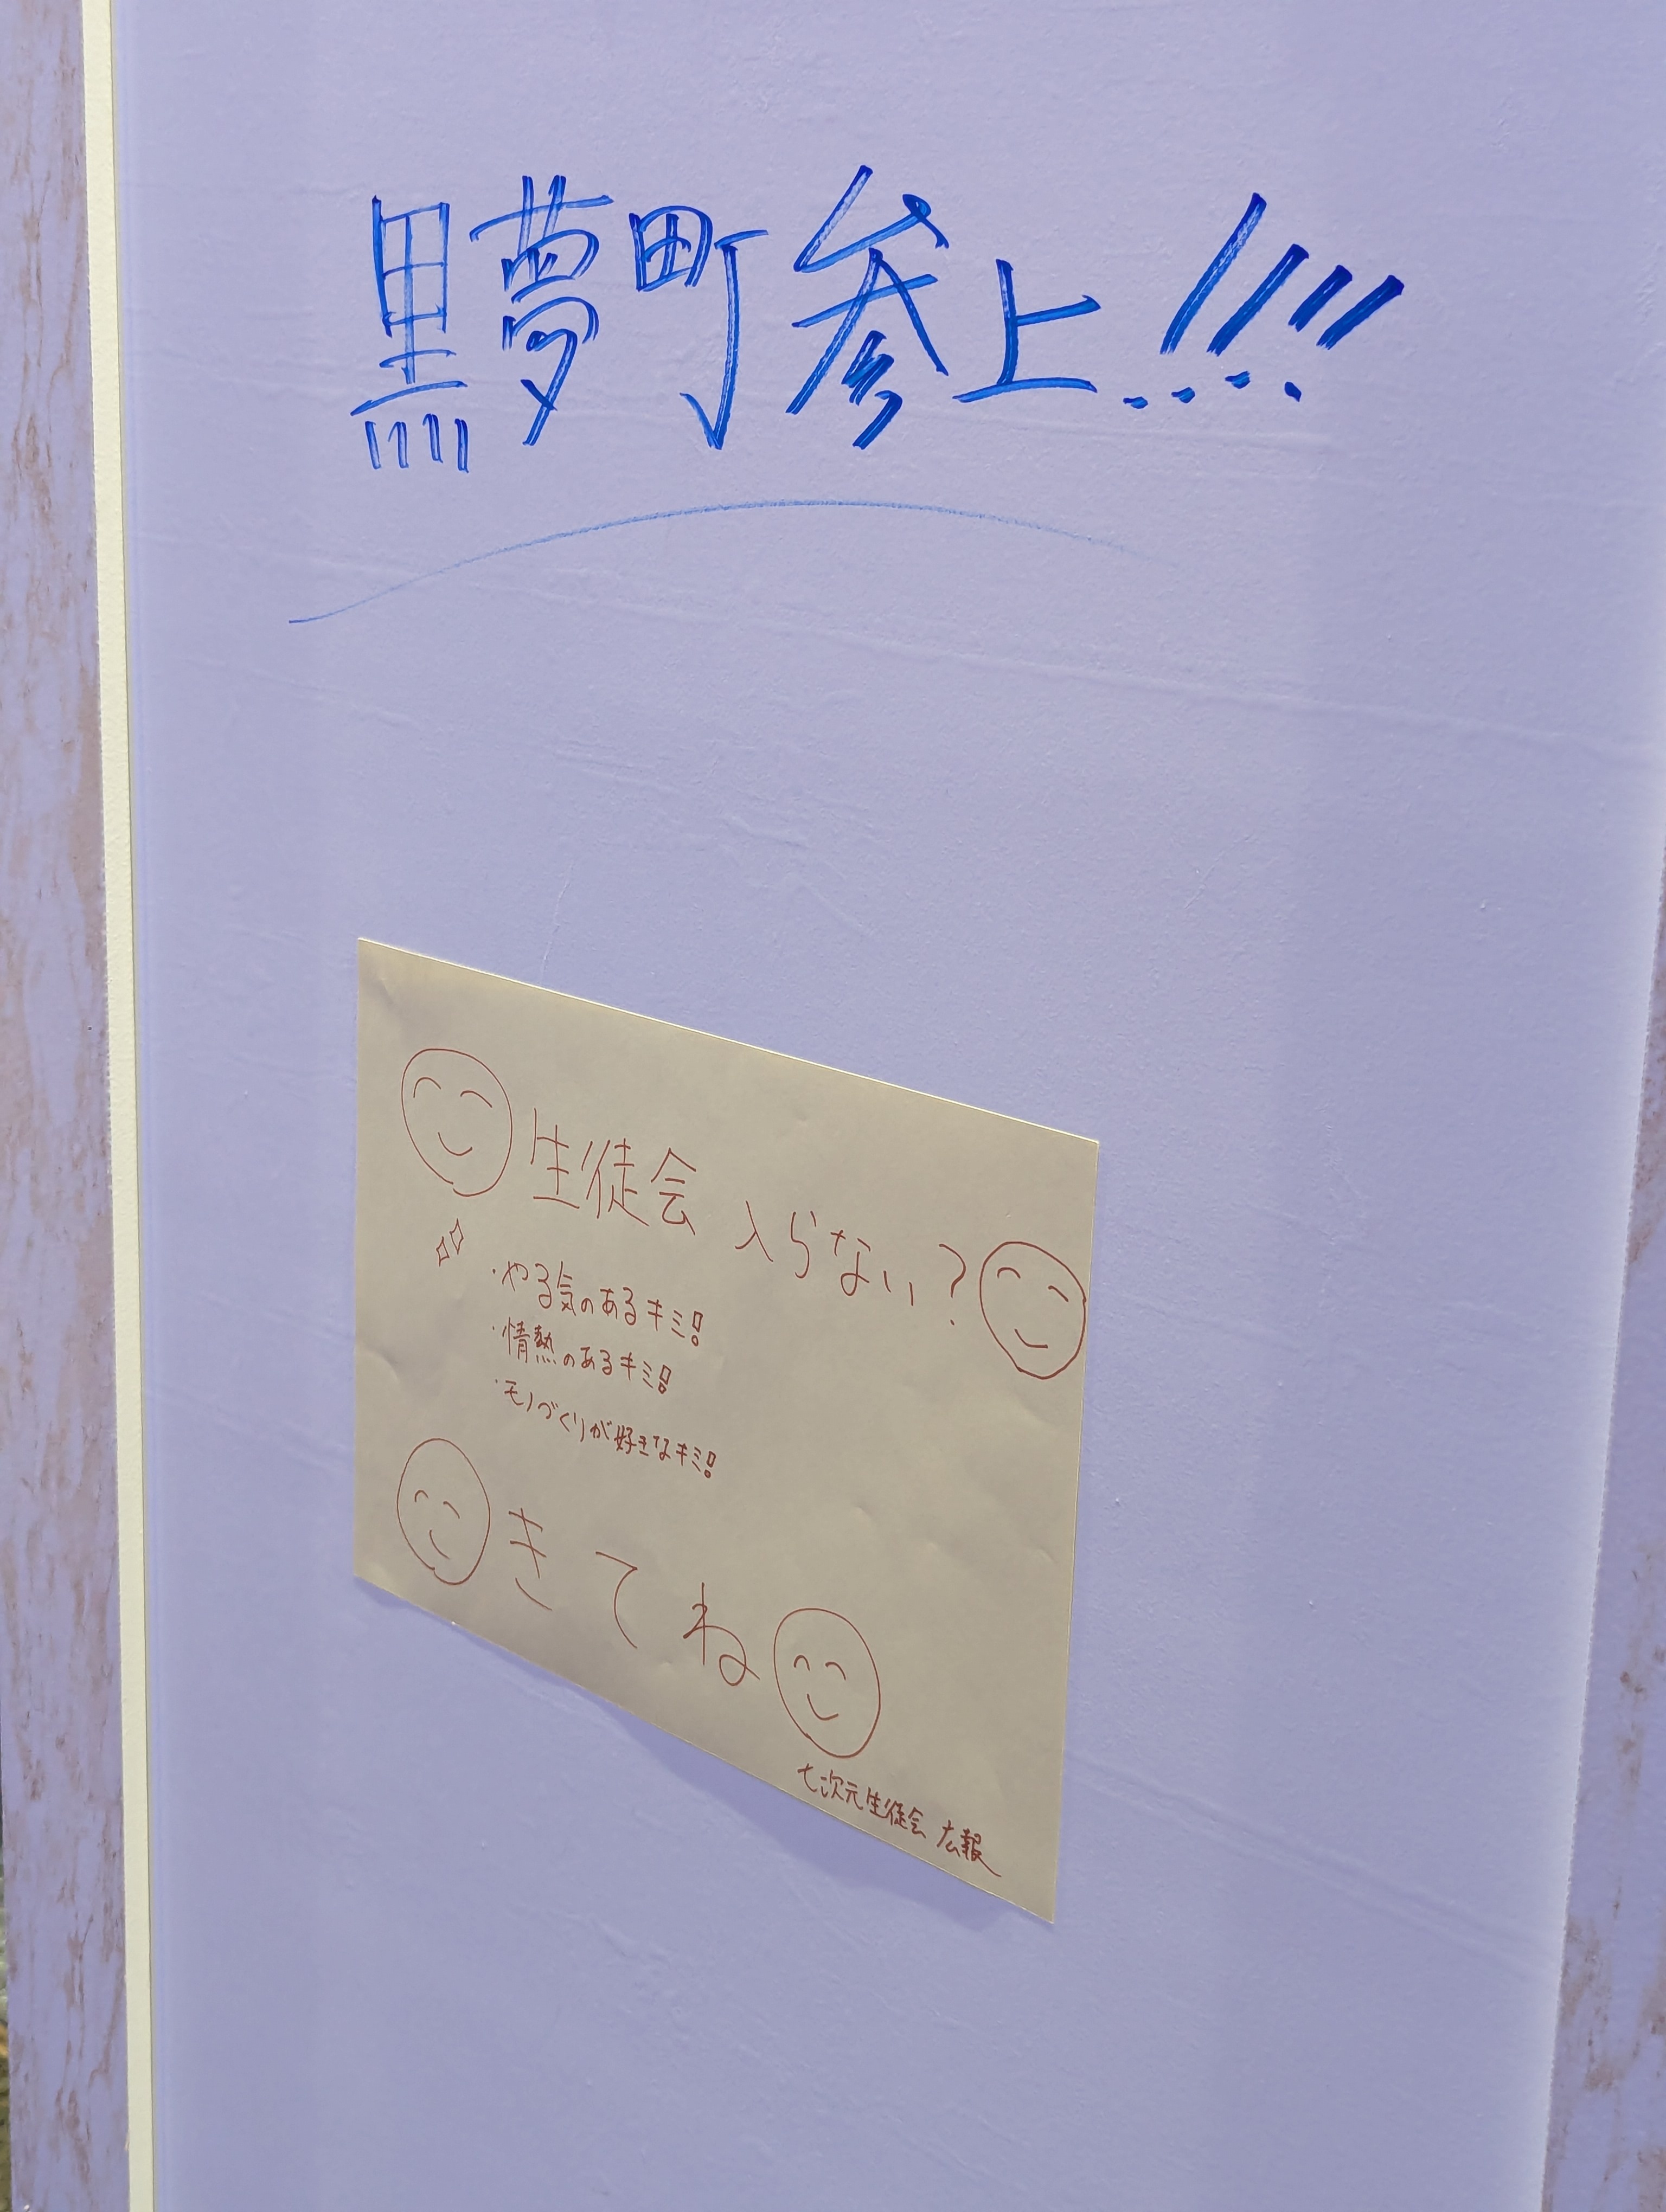 黒夢町参上!!!!
生徒会 入らない?
・やる気のあるキミ!
・情熱のあるキミ!
・モノづくりが好きなキミ!
きてね
七次元生徒会 広報